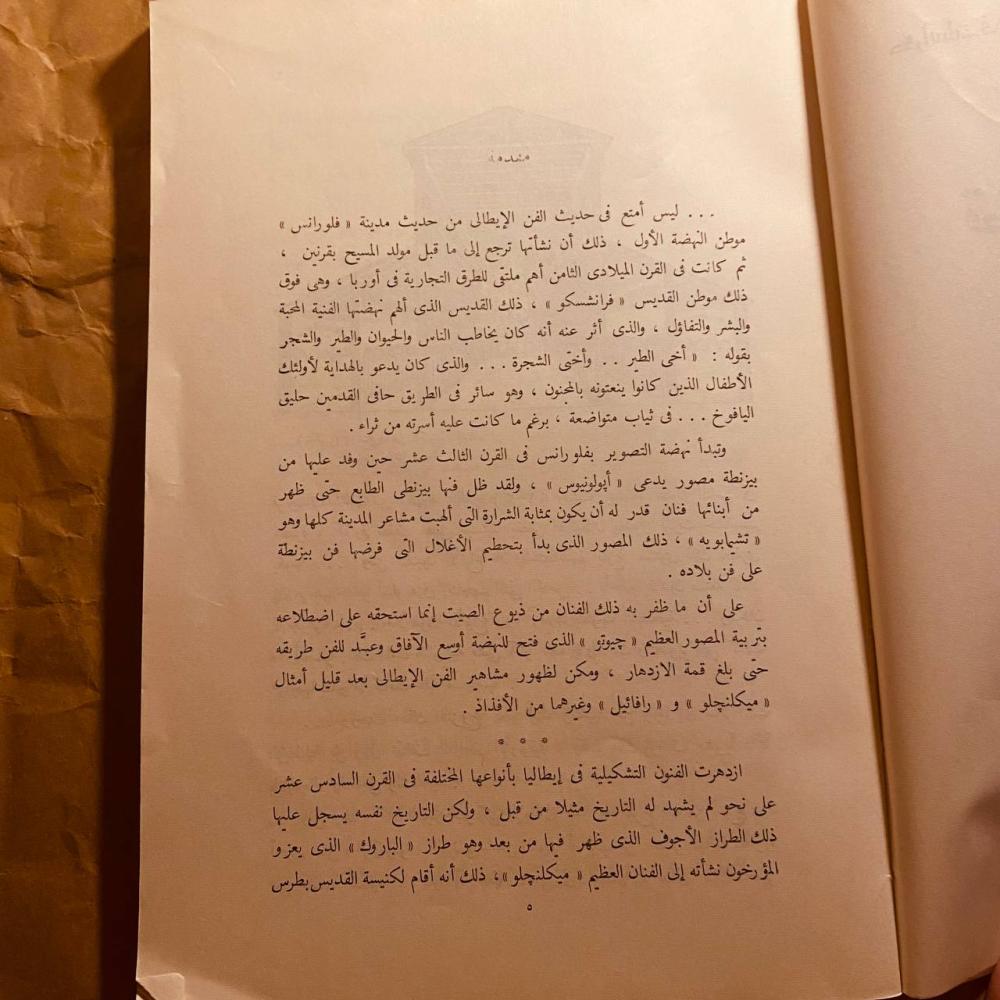 مقدمة
... ليس أمتع فى حديث الفن الإيطالى من حديث مدينة « فلورانس »
موطن النهضة الأول ، ذلك أن نشأتها ترجع إلى ما قبل مولد المسيح بقرنين ،
ثم كانت فى القرن الميلادى الثامن أهم ملتقى للطرق التجارية فى أوربا ، وهى فوق
ذلك موطن القديس « فرانشسكو » ، ذلك القديس الذى ألهم نهضتها الفنية المحبة
والبشر والتفاؤل ، والذى أثر عنه أنه كان يخاطب الناس والحيوان والطير والشجر
بقوله : « أخى الطير .. وأختى الشجرة ... والذى كان يدعو بالهداية لأولئك
الأطفال الذين كانوا ينعتونه بالمجنون ، وهو سائر فى الطريق حافى القدمين حليق
اليافوخ ... فى ثياب متواضعة ، برغم ما كانت عليه أسرته من ثراء .
وتبدأ نهضة التصوير بفلورانس فى القرن الثالث عشر حين وفد عليها من
بيزنطة مصور يدعى « أپولونيوس » ، ولقد ظل فنها بيزنطى الطابع حتى ظهر
من أبنائها فنان قدر له أن يكون بمثابة الشرارة التى ألهبت مشاعر المدينة كلها وهو
« تشيمابويه » ، ذلك المصور الذى بدأ بتحطيم الأغلال التى فرضها فن بيزنطة
على فن بلاده .
على أن ما ظفر به ذلك الفنان من ذيوع الصيت إنما استحقه على اضطلاعه
بتربية المصور العظيم « چيوتو » الذى فتح للنهضة أوسع الآفاق وعبَّد للفن طريقه
حتى بلغ قمة الازدهار ، ومكن لظهور مشاهير الفن الإيطالى بعد قليل أمثال
« ميكلنچلو » و « رافائيل » وغيرهما من الأفذاذ .
* * *
ازدهرت الفنون التشكيلية فى إيطاليا بأنواعها المختلفة فى القرن السادس عشر
على نحو لم يشهد له التاريخ مثيلا من قبل ، ولكن التاريخ نفسه يسجل عليها
ذلك الطراز الأجوف الذى ظهر فيها من بعد وهو طراز « الباروك » الذى يعزو
المؤرخون نشأته إلى الفنان العظيم « ميكلنچلو »، ذلك أنه أقام لكنيسة القديس بطرس
٥